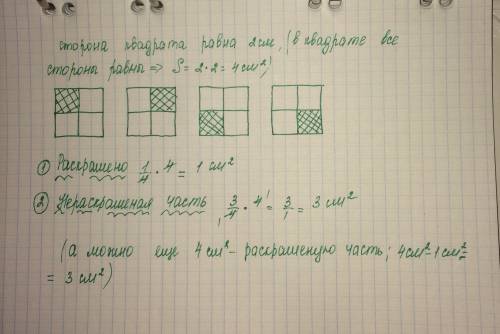 сторона квадрата равна 2см, (в квадрате все
стороны равны ⇒ S = 2 · 2 = 4 см²)
① Раскрашено 1/4 · 4 = 1 см²
② Нераскрашеная часть 3/4 · 4 = 3/1 = 3 см²
(а можно еще 4 см² - раскрашеную часть; 4см²-1см²=
= 3 см²)